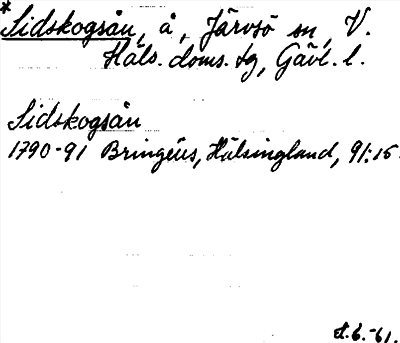 *Sidskogsån, å, Järvsö sn, V.
Häls. doms. tg, Gävl. l.
Sidskogsån
1790-91 Bringéus, Hälsingland, 91:15.
.6.-61.